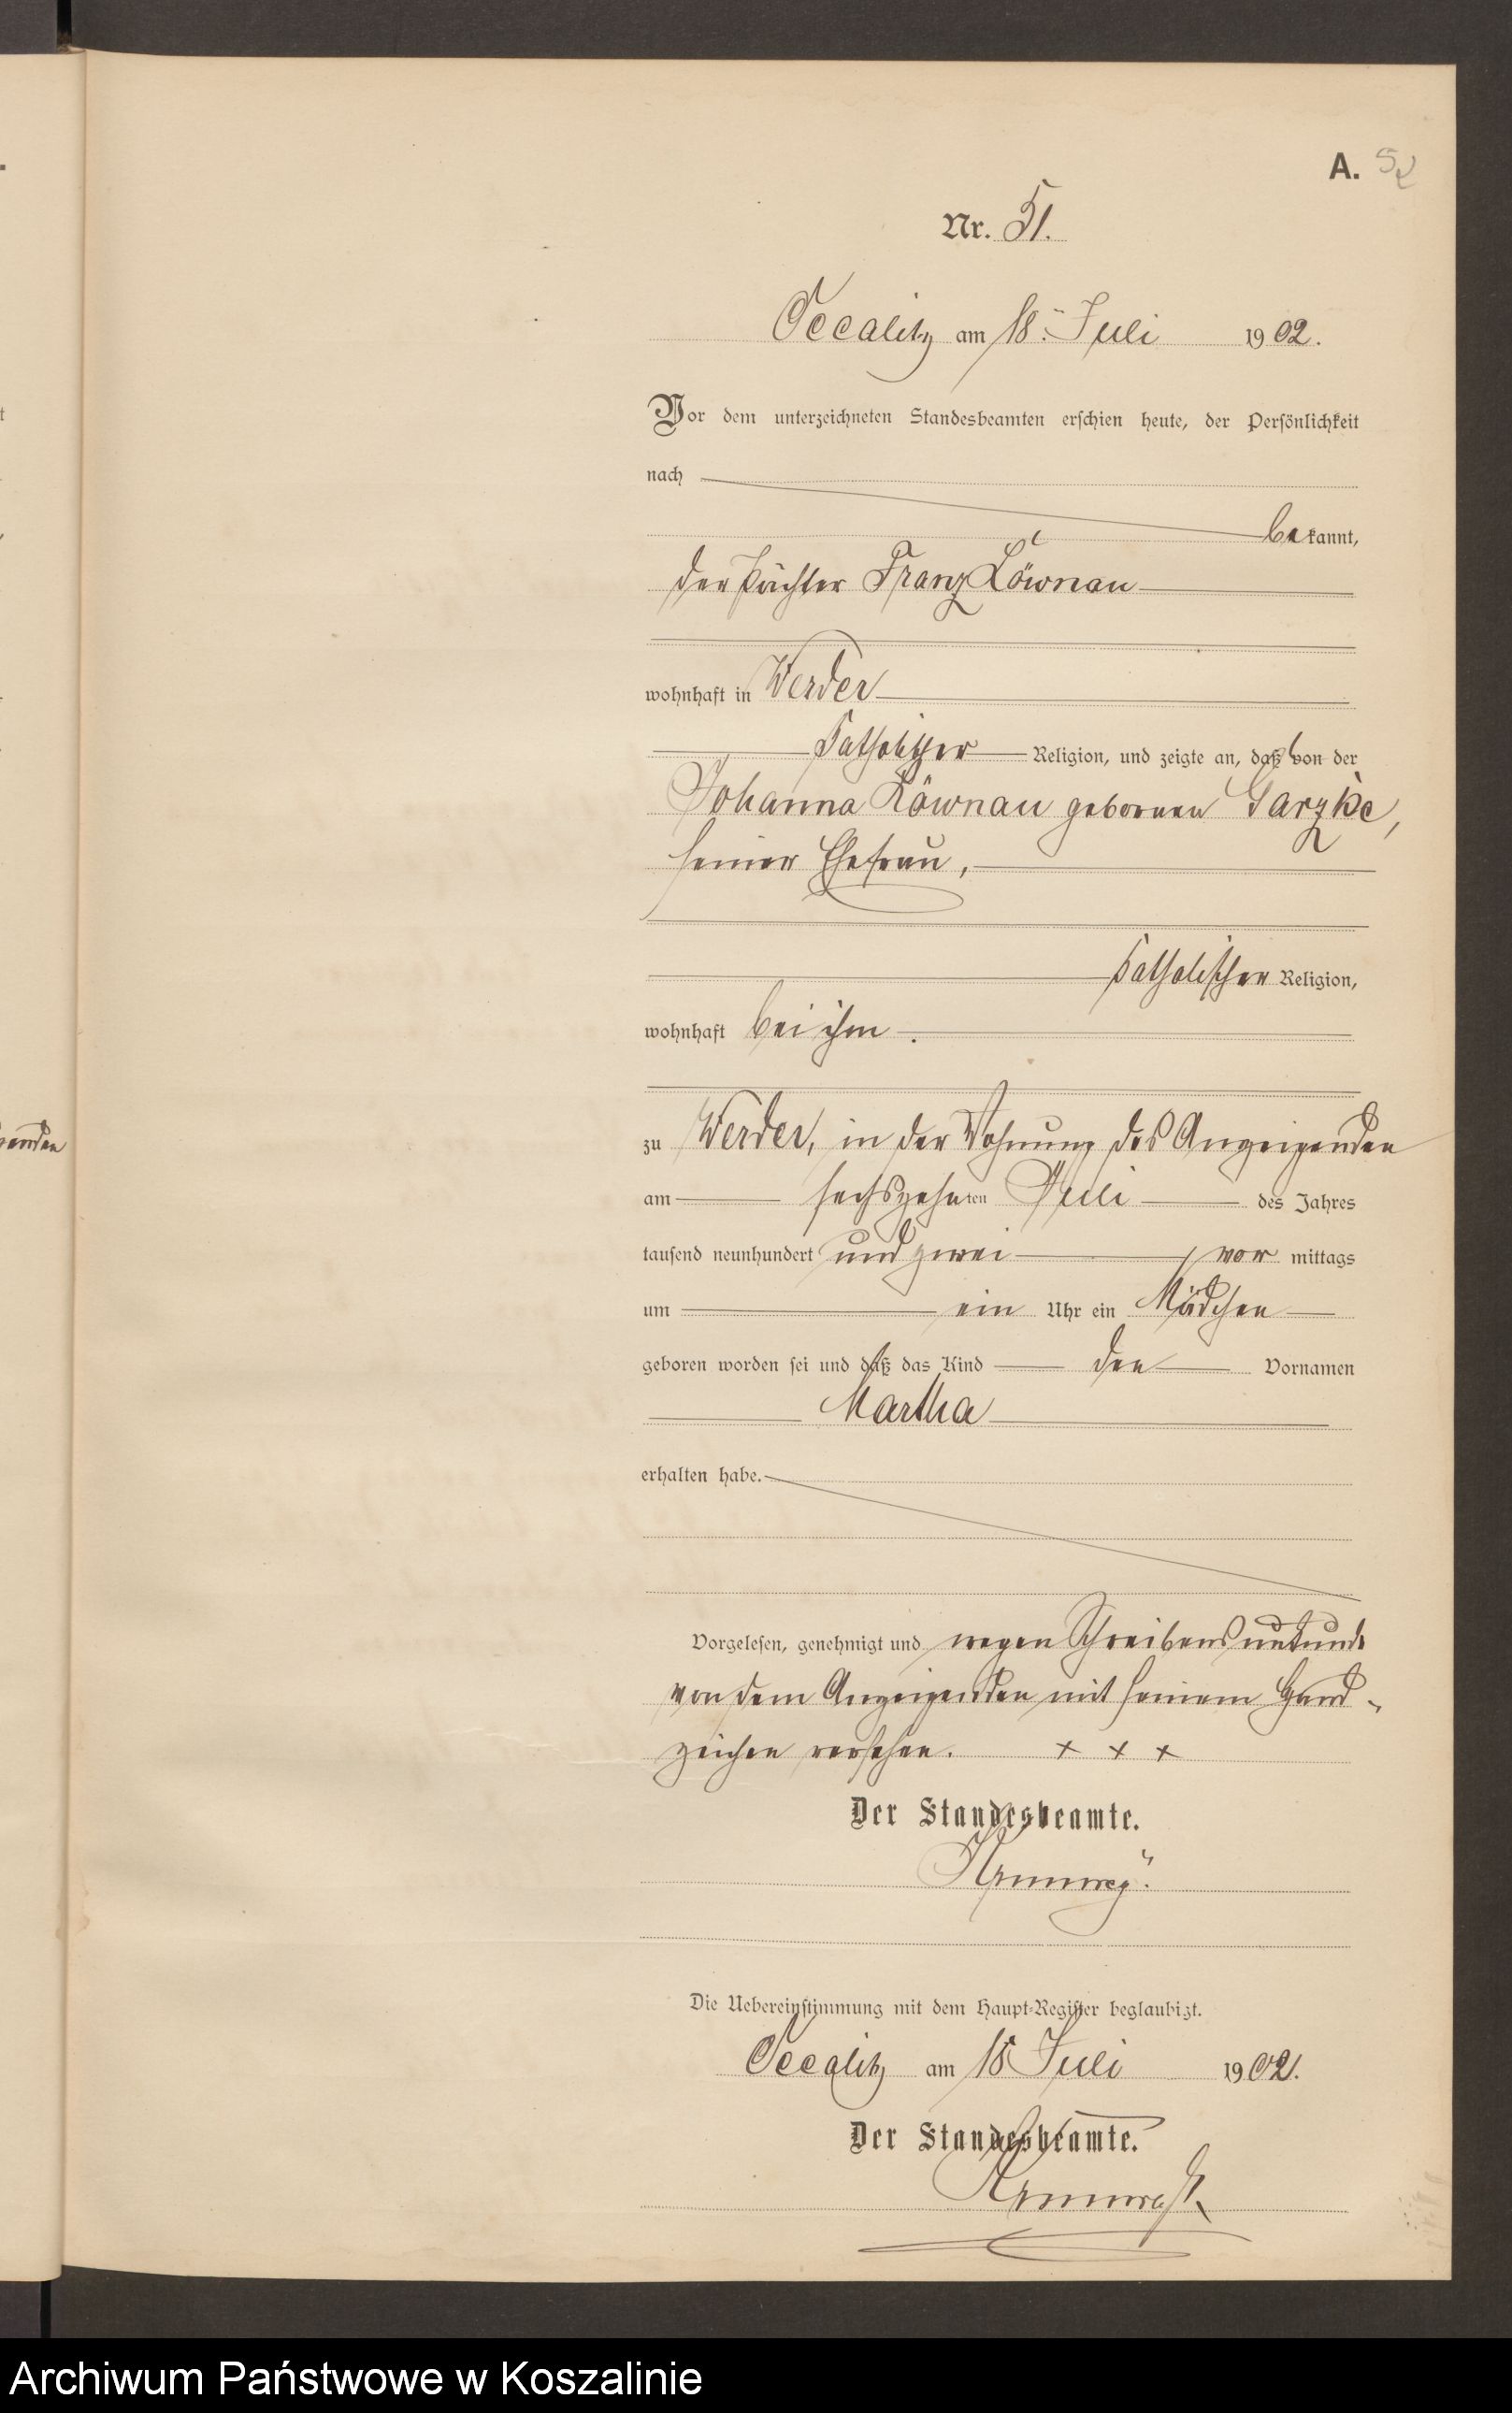 A. 52
Nr. 51.
Oecalitz am 18. Juli 1902.
Vor dem unterzeichneten Standesbeamten erschien heute, der Persönlichkeit
nach
bekannt,
der Pächter Franz Löwnau
wohnhaft in Werder
katholischer Religion, und zeigte an, daß von der
Johanna Löwnau geborenen Garzke,
seiner Ehefrau,
katholischer Religion,
wohnhaft bei ihm.
zu Werder, in der Wohnung des Anzeigenden
am sechszehnten Juli des Jahres
tausend neunhundert und zwei, vormittags
um ein Uhr ein Mädchen
geboren worden sei und daß das Kind den Vornamen
Martha
erhalten habe.
Vorgelesen, genehmigt und wegen Schreibensunkunde
von dem Anzeigenden mit seinem Hand-
zeichen versehen. + + +
Der Standesbeamte.
Die Uebereinstimmung mit dem Haupt-Register beglaubigt.
Oecalitz am 18 Juli 1902.
Der Standesbeamte.
Archiwum Państwowe w Koszalinie